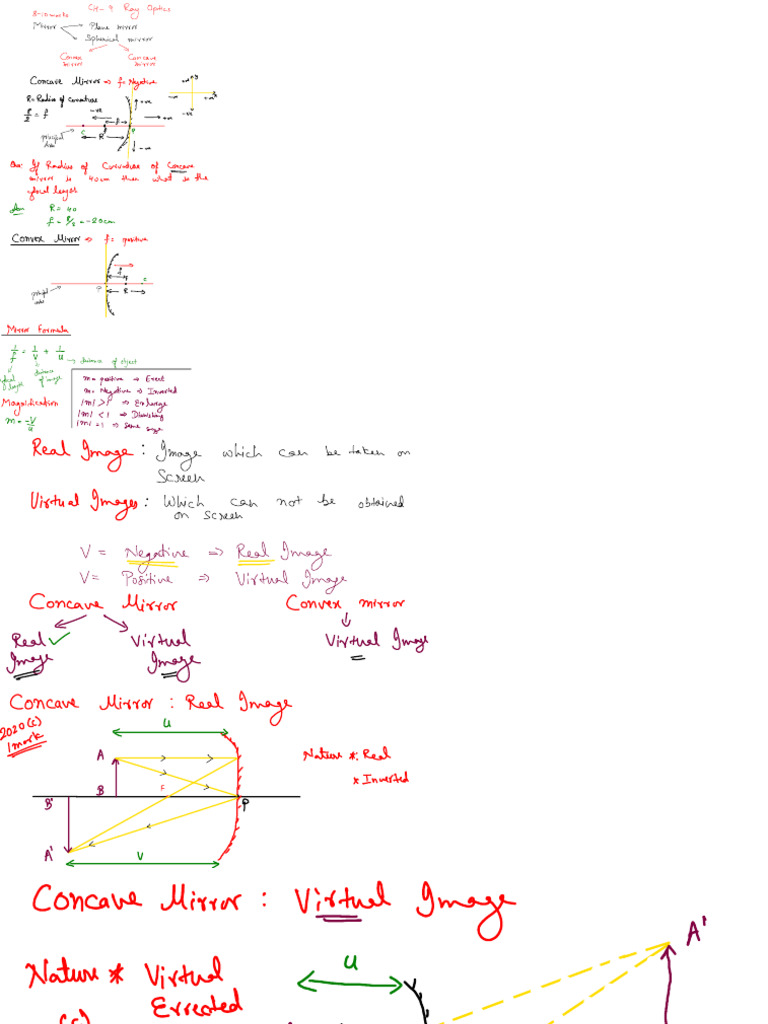 8-inmarks
CH-9 Ray Optics
Mirror
Plane mirror
Spherical mirror
Convex mirror
Concave mirror
Concave Mirror ⇒ f = Negative
R = Radius of Curvature
R/2 = f
-ve
+ve
+ve
-ve
f
R
C
P
principal axis
-ve
+ve
-ve
Que: If Radius of Curvature of Concave
mirror is 40cm then what is the
focal length
Ans R = 40
f = R/2 = -20cm
Convex Mirror ⇒ f = positive
f
R
P
C
principal axis
Mirror Formula
1/f = 1/V + 1/u → distance of object
focal length
distance of image
m = positive → Erect
m = Negative → Inverted
|m| > 1 ⇒ Enlarge
|m| < 1 ⇒
|m| = 1 ⇒ Same size
Magnification
m = -V/u
Real Image : Image which can be taken on
Screen
Virtual Images : Which can not be obtained
on screen
V = Negative ⇒ Real Image
V = Positive ⇒ Virtual Image
Concave Mirror
Convex mirror
Real Image
Virtual Image
Virtual Image
Concave Mirror : Real Image
2020(c)
1 mark
u
A
B
F
P
B'
A'
V
Nature * : Real
* Inverted
Concave Mirror : Virtual Image
A'
Nature * Virtual
Errected
u
(c)